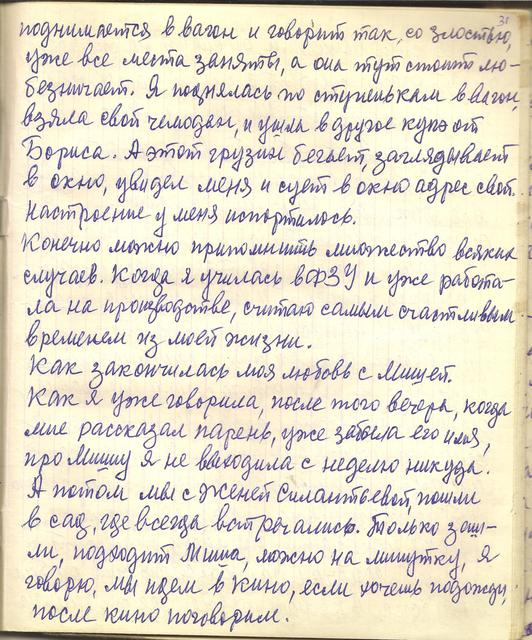 31
поднимается в вагон и говорит так, со злостью,
уже все места заняты, а она тут стоит лю-
безничает. Я поднялась по ступенькам в вагон,
взяла свой чемодан, и ушла в другое купэ от
Бориса. А этот грузин бегает, заглядывает
в окно, увидел меня и сует в окно адрес свой.
Настроение у меня испортилось.
Конечно можно припомнить множество всяких
случаев. Когда я училась в ФЗУ и уже работа-
ла на производстве, считаю самым счастливым
временем из моей жизни.
Как закончилась моя любовь с Мишей.
Как я уже говорила, после того вечера, когда
мне рассказал парень, уже забыла его имя,
про Мишу я не выходила с неделю никуда.
А потом мы с Женей Силантьевой, пошли
в сад, где всегда встречались. Только зашли-
ли, подходит Миша, можно на минутку, я
говорю, мы идем в кино, если хочешь подожди,
после кино поговорим.